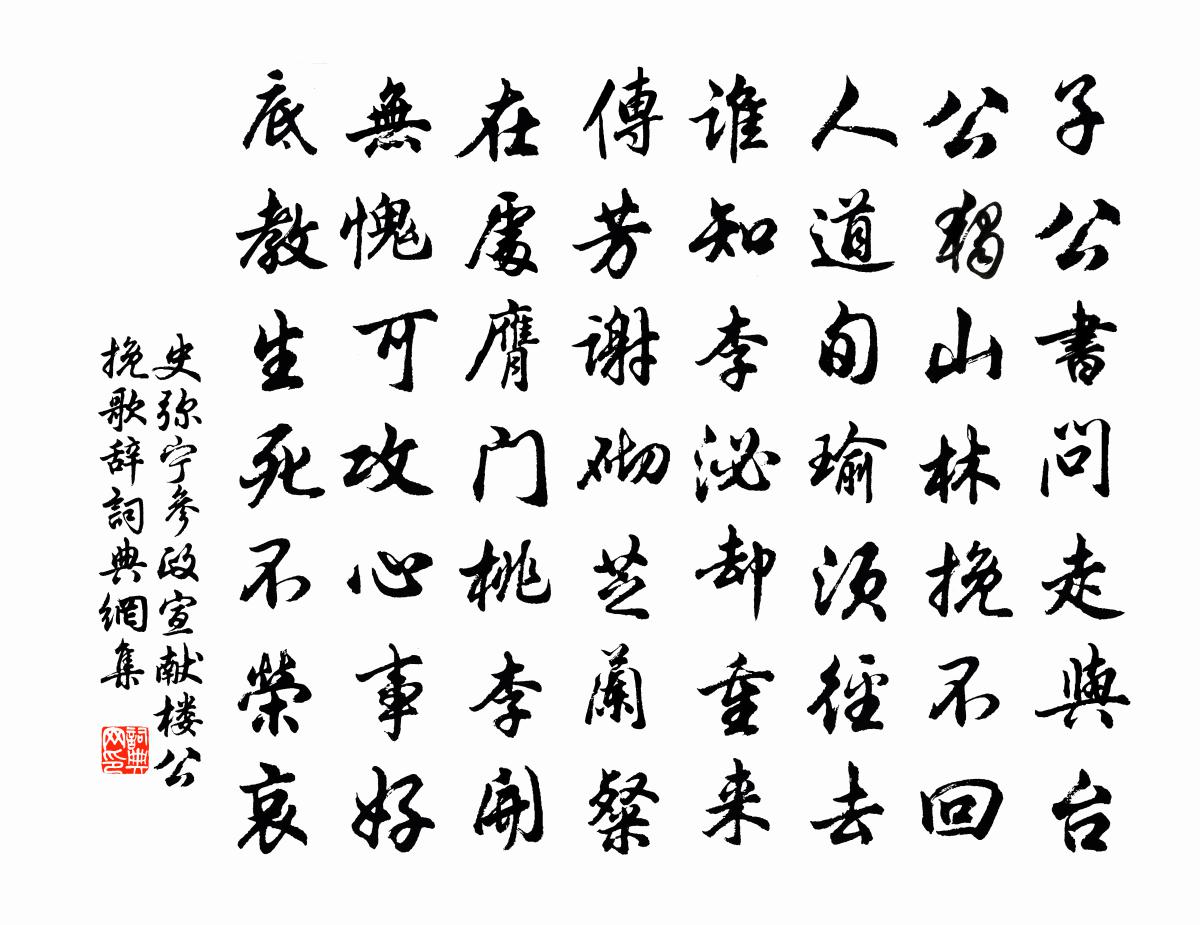 子公書問走與台
公獨山林挽不回
人道旬瑜須徑去
誰知李泌却重来
傳芳謝砌芝蘭粲
在處膺门桃李開
無愧可攻心事好
底教生死不榮哀
史弥宁参政宣献楼公
挽歌辞詞典網集
詞典网印